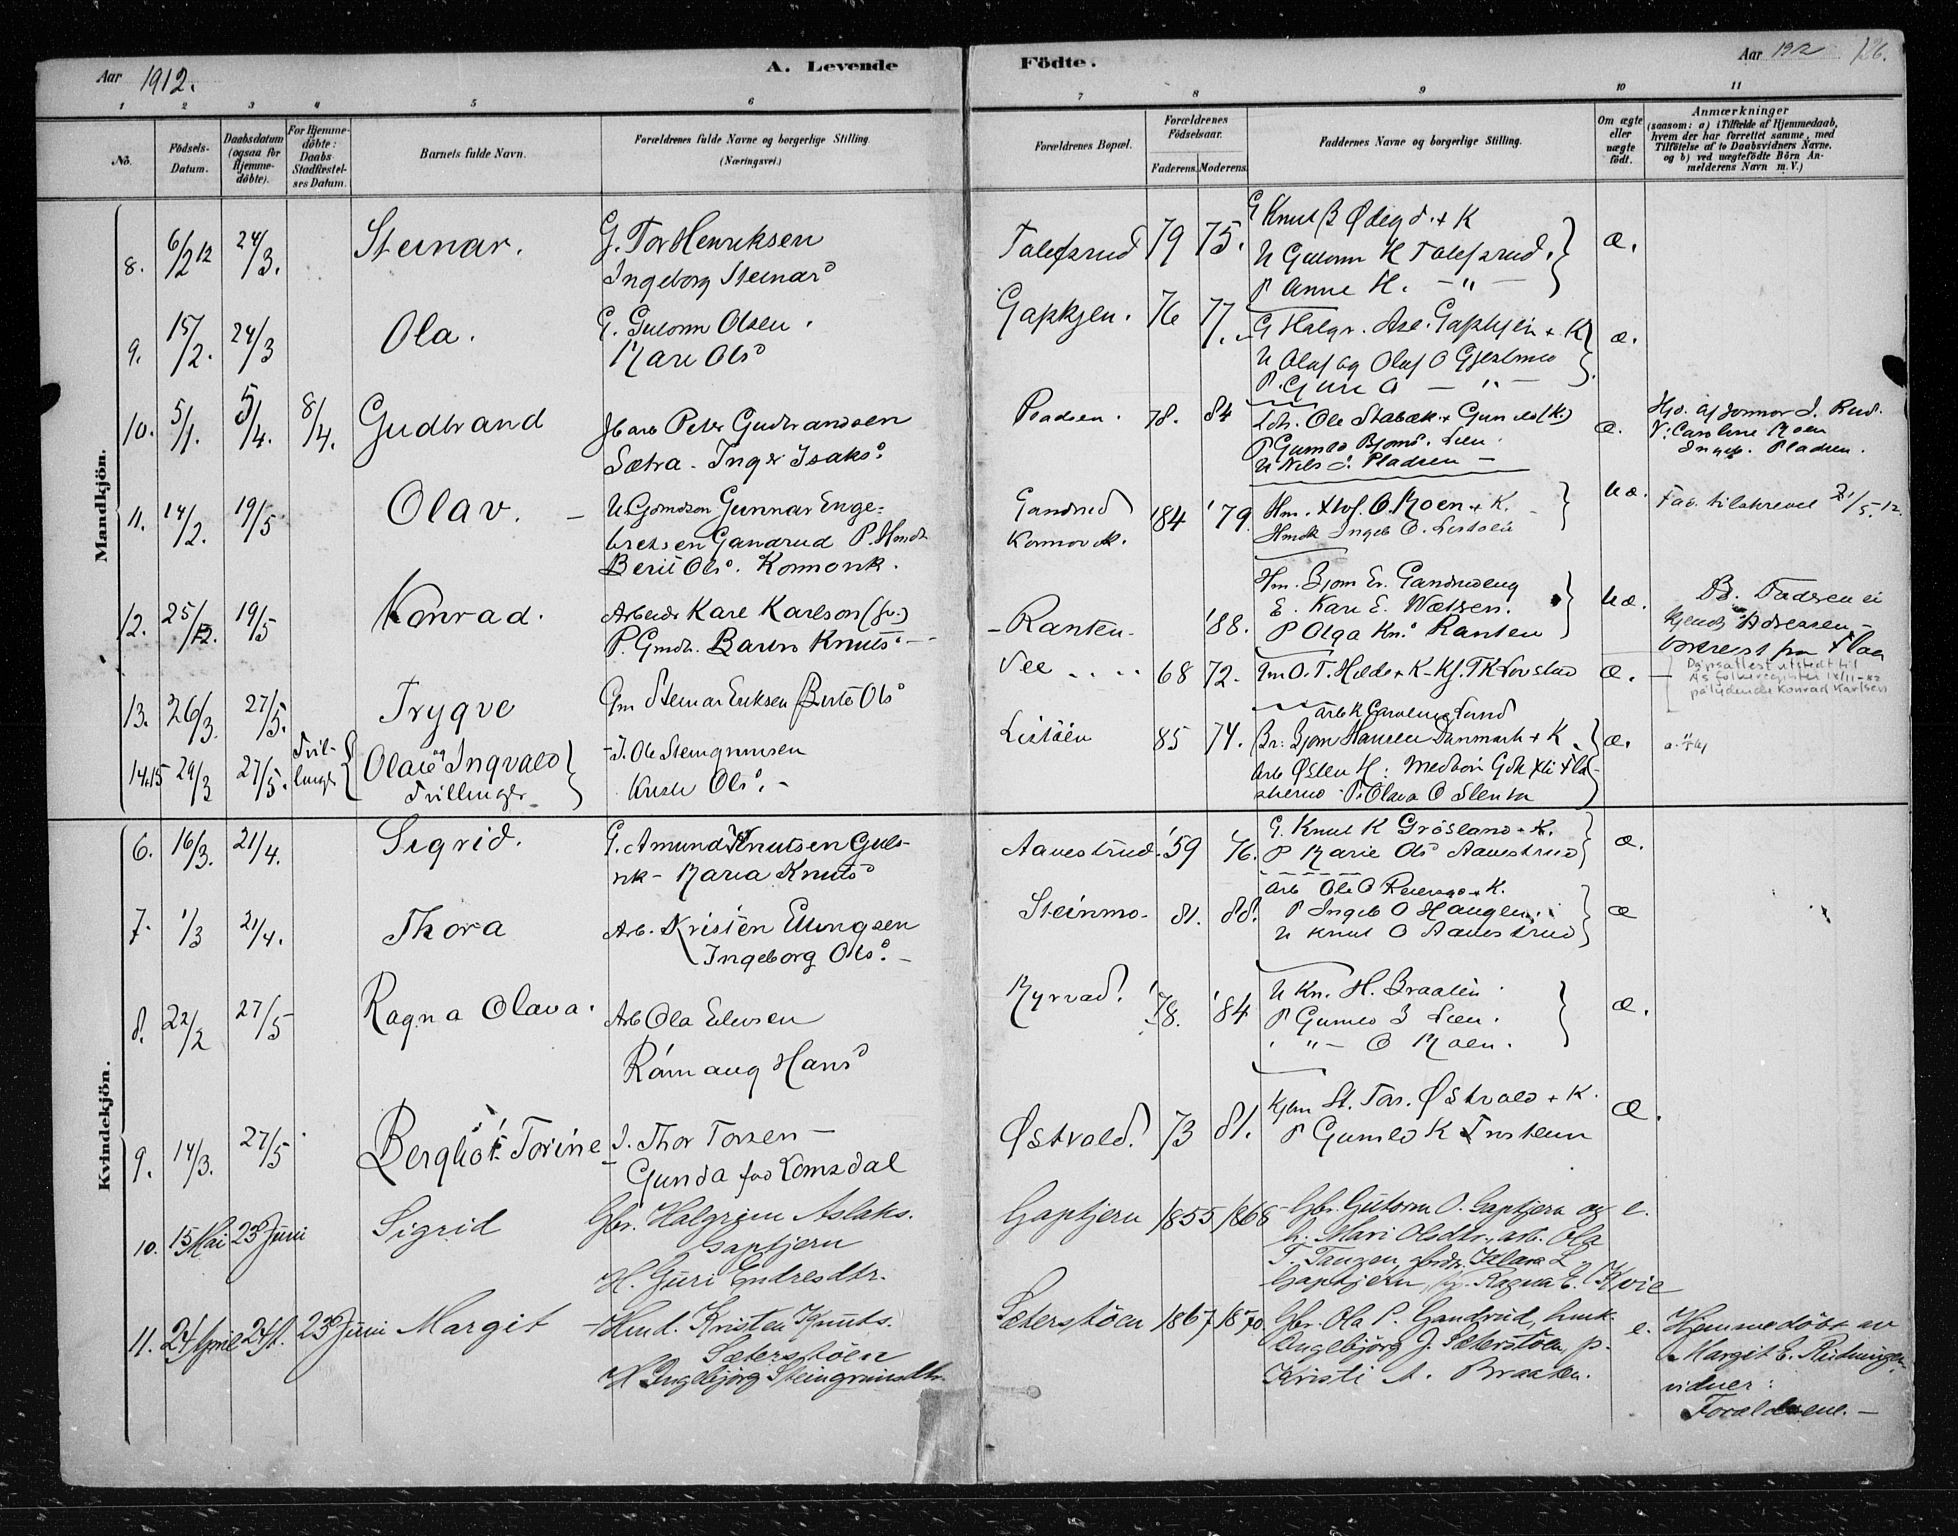 Aar 1912.
A. Levende
Födte.
Aar 1912 126.
1 2 3 4 5 6 7 8 9 10 11
No.
Födsels-
Datum.
Daabsdatum
(ogsaa for
Hjemme-
döbte).
For Hjemme-
döbte:
Daabs-
Stadfæstel-
ses Datum.
Barnets fulde Navn.
Forældrenes fulde Navne og borgerlige Stilling
(Næringsvei.)
Forældrenes Bopæl.
Forældrenes
Födselsaar.
Faderens. Moderens.
Faddernes Navne og borgerlige Stilling.
Om ægte
eller
uægte
födt.
Anmærkninger
(saasom: a) i Tilfælde af Hjemmedaab,
hvem der har forrettet samme, med
Tilföielse af to Daabsvidners Navne,
og b) ved uægtefödte Börn An-
melderens Navn m.V.)
Mandkjön.
8. 6/2 12 24/3. Steinar. G. Tor Henriksen
Ingeborg Steinarsd
Tolefsrud 79 75. G Knut B Ødegd. + K
U Gutorm H Tolefsrud.
P Anne H. — " —
æ.
9. 15/2. 24/3 Ola. G. Gutorm Olsen.
Kari Olsd
Gapkjen. 76 77. G Halgr. Asl. Gaptjern + K
U Olaf og Olaf O
P. Guri O — " —
æ.
10. 5/1. 5/4. 8/4. Gudbrand Peter Gudbrandsen
Sætra - Inger Isaksd.
Pladsen. 78. 84 Ole Stabæk + Gunild (K.)
P Gunild Bjørnsd. Lien.
U Nils J. Pladsen —
æ.
Hjd. af Jormor I. Rud.
V: Caroline Moen
Ingeb. Pladsen.
11. 14/2. 19/5 Olav. — U. Gunnar Enge-
bretsen Gandrud P. Hmdt
Berit Olsd.
Gandrud
84 79. Hm. O. Moen + K.
Hmdk Ingeb O. Listøen
Uæ.
Fad. tilskrevet 21/5-12.
12. 25/12. 19/5 Konrad. Arbeider Kare Karlson (sv.)
P. Gmdt. Knutsd. —
- Ranten - 88. Hm. Bjørn Er. Gandrudeng
E. Kari E.
P Olga Knd. Ranten
Uæ.
B. Fadren ei
kjendt Adressen —
bortreist fra Flaa
Dåpsattest utstedt til
Ås folkeregister
pålydende Konrad Karlsen
13. 26/3. 27/5. Trygve Gm Steinar Eriksen Berte Olsd
Vee . . . . 68 72. Gm O. T. Hilde + K - Kj. T K Lovstad
Arb K Caroline Lund
æ. —
14.15 29/3 27/5. Tvil-
linger Olav og Ingvald
Tvillinger
- I. Ole Steingrimsen
Kristi Olsd. -
Listøen 85 74. Br: Bjørn Hansen Danmark + K
Arb Østen H: Medbøn
P. Olava O
æ.
Kvindekjön.
6. 16/3. 21/4. Sigrid. G. Amund Knutsen Guls-
vik - Maria Knutsd
Aavestrud. 59 76. G. Knut K Grøsland + K.
P Marie Olsd Aavestrud
æ.
7. 1/3 21/4. Thora Arb. Kristen Ellingsen
Ingeborg Olsd. —
Steinmo. 81. 88. Arb Ole O + K.
P Ingeb O Haugen.
U Knut O Aavestrud
æ
8. 22/2 27/5 Ragna Olava. Arb Ola Eilevsen
Rønnaug Hansd
Myrvad. 78. 84 U Kn. H. Braaten.
P Gunild B Lien.
" — O Moen.
æ.
9. 14/3. 27/5 Bergliot Torine I. Thor Torsen —
Gunda fød Komsdal
Østvold. 73 81. Kjøm St. Tor. Østvold + K.
P Gunild K
æ.
10. 15 Mai 23 Juni Sigrid Gbr. Halgrim Aslaks.
Gaptjern
H. Guri Endresdtr.
Gaptjern 1855 1868 Gbr. Gutorm O. Gaptjern og
h. Mari Olsdtr., arb. Ola
T. Tangen, Klara L.
Gaptjern, Ragna E. Kvie
e.
11. 24 April 24/4. 23 Juni Margit — Hmd. Kristen Knuts.
Sæterstøen
H. Ingebjørg Steingrimsdtr.
Sæterstøen 1867 1870. Gbr. Ola P. Gandrud, hmk.
Ingebjørg J. Sæterstøen, p.
Kristi A. Braaten.
e.
Hjemmedöbt av
Margit E.
vidner:
Foraldrene. —